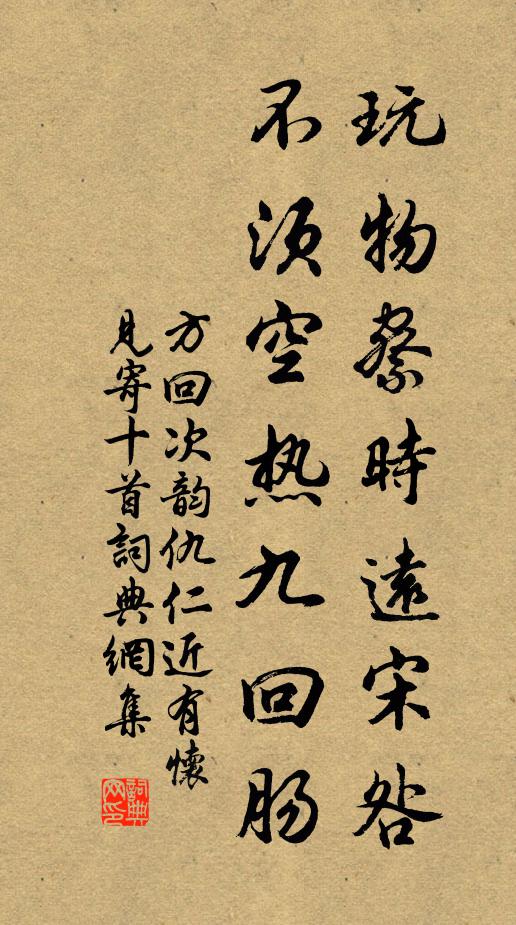 玩物察時遠宋咎
不須空热九回肠
方回次韵仇仁近有懷
見寄十首詞典網集
詞典
网印